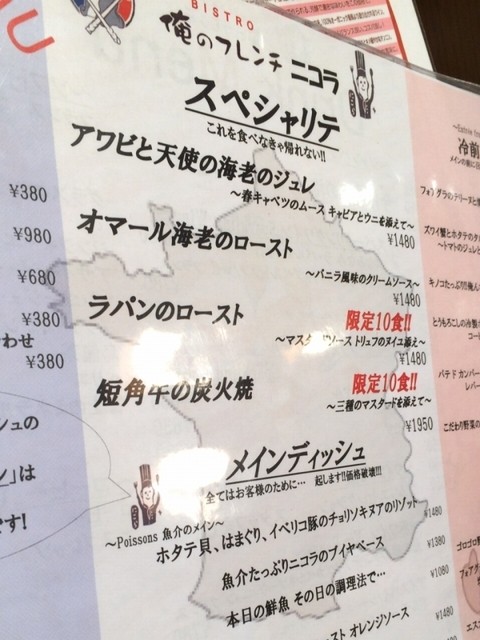 BISTRO
俺のフレンチ ニコラ
スペシャリテ
これを食べなきゃ帰れない!!
アワビと天使の海老のジュレ
～春キャベツのムース キャビアとウニを添えて～
¥1480
オマール海老のロースト
～バニラ風味のクリームソース～
¥1480
ラパンのロースト
限定10食!!
～マスタードソース トリュフのヌイユ添え～
¥1480
短角牛の炭火焼
限定10食!!
～三種のマスタードを添えて～
¥1950
メインディッシュ
全てはお客様のために… 起します!!価格破壊!!!
～Poissons 魚介のメイン～
ホタテ貝、はまぐり、イベリコ豚のチョリソキヌアのリゾット
¥1480
魚介たっぷりニコラのブイヤベース
¥1380
本日の鮮魚 その日の調理法で…
¥1080
スト オレンジソース
¥1480
¥380
¥980
¥680
¥380
わせ
¥380
シュの
ン」は
です!
冷前
フォアグラのテリーヌと
ズワイ蟹とホタテのタ
～トマトのジュレと
キノコたっぷり!!俺ん
とうもろこしの冷製
コー
パテド カンパー
レバー
こだわり野菜の
ゴロゴロ
フォアグ
エス